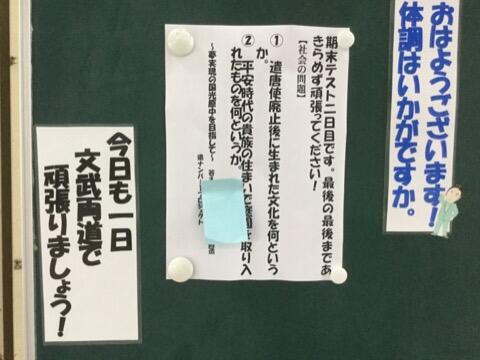 おはようございます！
体調はいかがですか。
期末テスト二日目です。最後の最後まであ
きらめず頑張ってください！
【社会の問題】
① 遣唐使廃止後に生まれた文化を何という
か。
② 平安時代の貴族の住まいで庭園を取り入
れたものを何というか。
～夢実現の国光原中を目指して～
県ナンバー１プロジェクト
今日も一日
文武両道で
頑張りましょう！